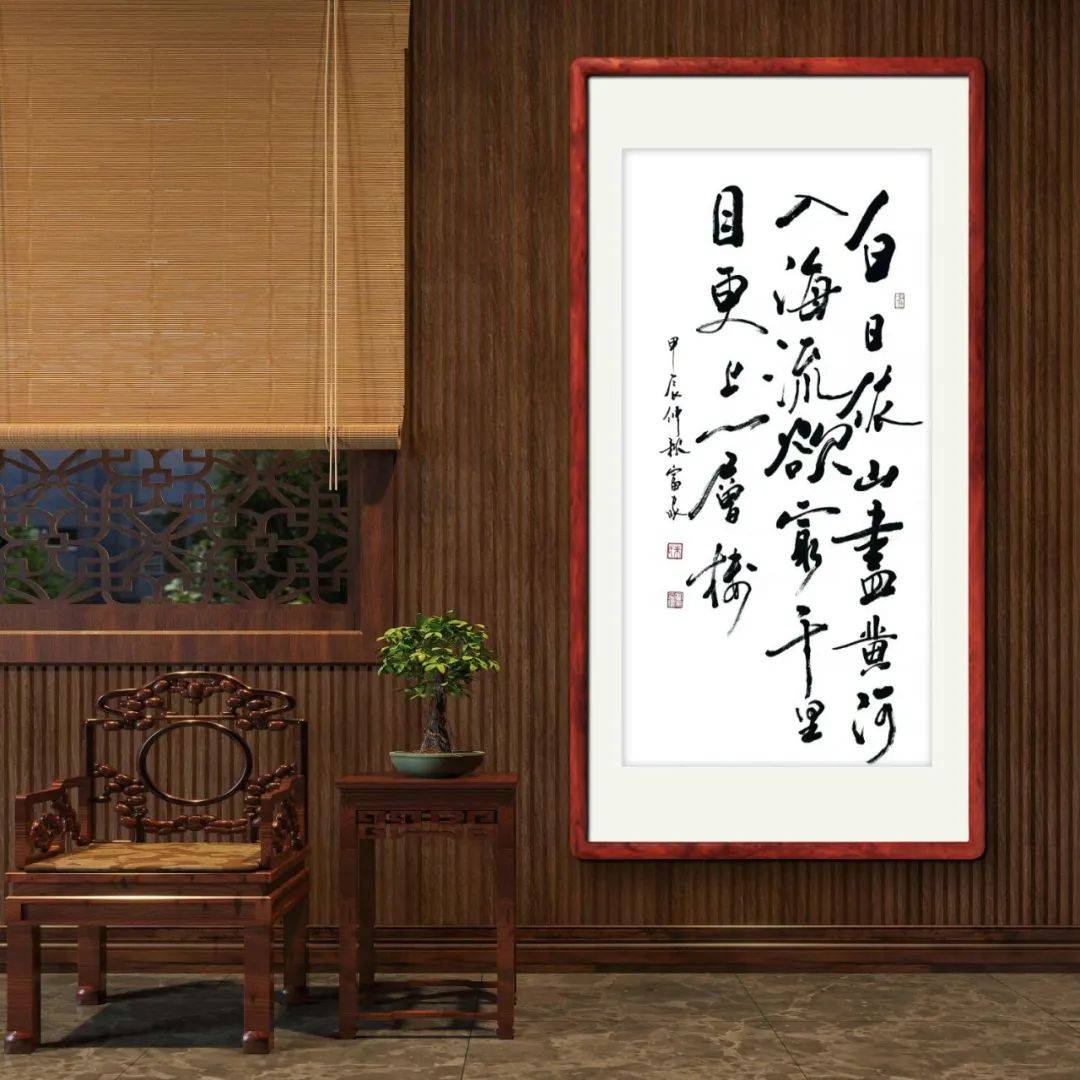 白日依山盡黄河
入海流欲窮千里
目更上一層樓
甲辰仲秋富